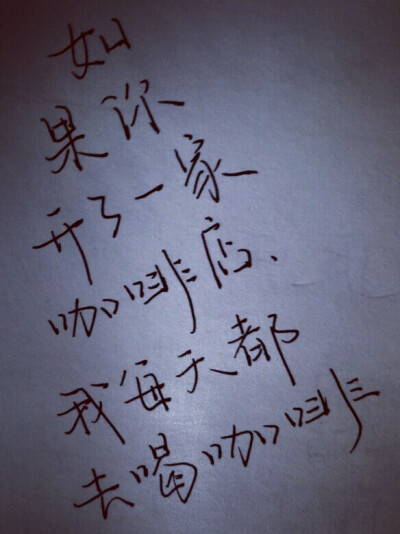 如
果你
开了一家
咖啡店、
我每天都
去喝咖啡